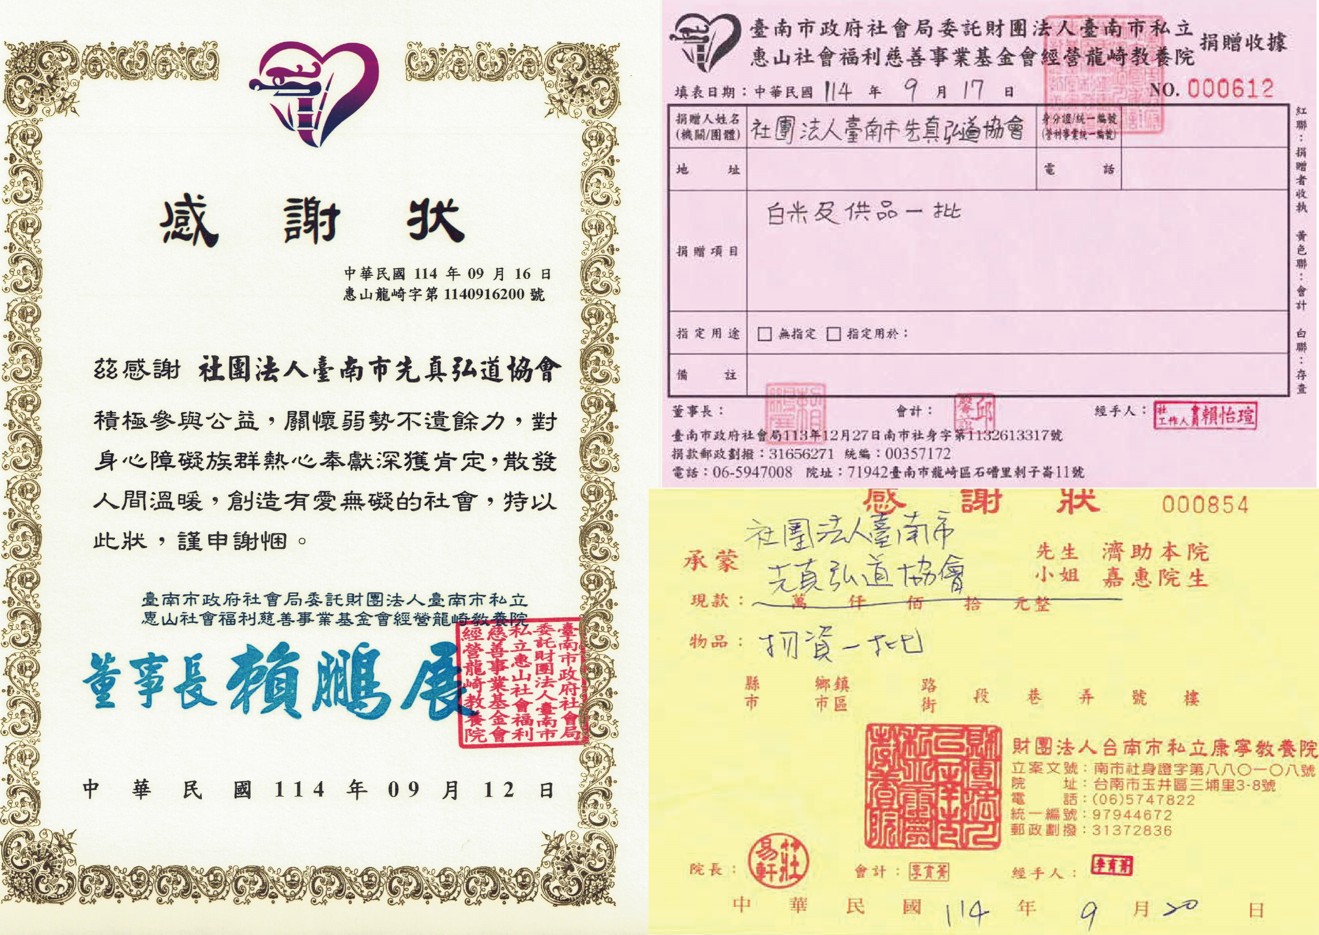 感謝狀
中華民國 114 年 09 月 16 日
惠山龍崎字第 1140916200 號
茲感謝 社團法人臺南市先真弘道協會
積極參與公益，關懷弱勢不遺餘力，對
身心障礙族群熱心奉獻深獲肯定，散發
人間溫暖，創造有愛無礙的社會，特以
此狀，謹申謝悃。
臺南市政府社會局委託財團法人臺南市私立
惠山社會福利慈善事業基金會經營龍崎教養院
董事長 賴鵬展
臺南市政府社會局
委託財團法人臺南市
私立惠山社會福利
慈善事業基金會
經營龍崎教養院
中華民國 114 年 09 月 12 日
臺南市政府社會局委託財團法人臺南市私立
惠山社會福利慈善事業基金會經營龍崎教養院
捐贈收據
填表日期：中華民國 114 年 9 月 17 日
NO. 000612
捐贈人姓名
(機關/團體)
社團法人臺南市先真弘道協會
身分證/統一編號
(營利事業統一編號)
地址
電話
捐贈項目
白米及供品一批
指定用途
□ 無指定 □ 指定用於：
備註
紅聯：捐贈者收執 黃色聯：會計 白聯：存查
董事長：
會計：
經手人：
社會工作人員 賴怡瑄
臺南市政府社會局113年12月27日南市社身字第1132613317號
捐款郵政劃撥：31656271 統編：00357172
電話：06-5947008 院址：71942臺南市龍崎區石𥕢里刺子崙11號
感謝狀
000854
承蒙
社團法人臺南市
先真弘道協會
先生
小姐
濟助本院
嘉惠院生
現款： 萬 仟 佰 拾 元整
物品：物資一批
縣市 鄉鎮市區 路街 段 巷 弄 號 樓
財團法人台南市私立康寧教養院
立案文號：南市社身證字第八八〇一〇八號
院址：台南市玉井區三埔里3-8號
電話：(06)5747822
統一編號：97944672
郵政劃撥：31372836
院長：
莊易軒
會計：
經手人：
中華民國 114 年 9 月 20 日